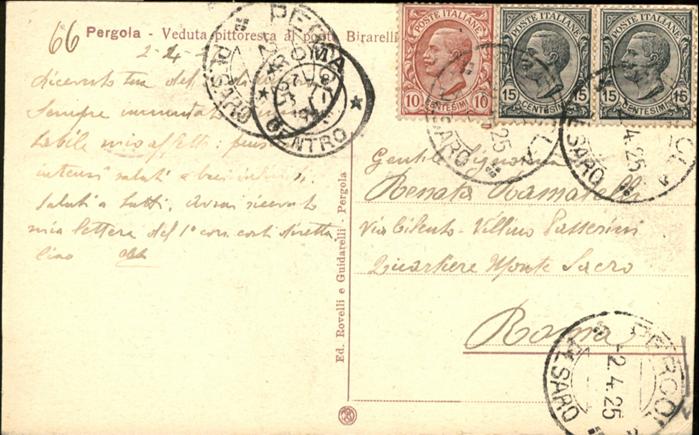 66
Pergola - Veduta pittoresca al ponte Birarelli
2-4-
Ricevuto tua del
Sempre immutata
bile mio affetto:
intensi saluti
saluti a tutti. Avrai ricevuto
mia lettera del 1° con
Ciao
Ed. Rovelli e Guidarelli - Pergola
POSTE ITALIANE
10 CENTESIMI 10
POSTE ITALIANE
15 CENTESIMI 15
POSTE ITALIANE
15 CENTESIMI 15
ROMA
CENTRO
PESARO
PESARO
4.25
PESARO
4.25
Gentil Signorina
Renata Ramarelli
Via Cilento - Villino Passerini
Quartiere Monte Sacro
Roma
PERGOL
-2.4.25
PESARO